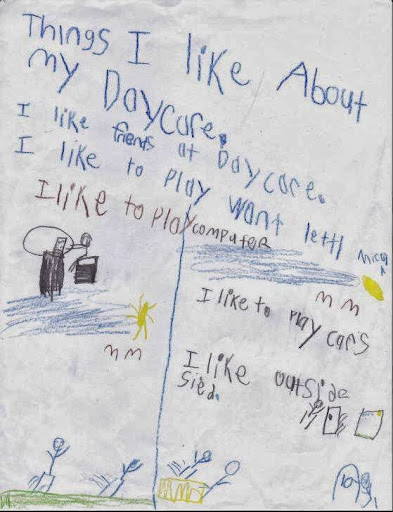 Things I like About
my Daycare.
I like friends at Daycare.
I like to play want lettl
I like to play computer
I like to play cars
I like outside
Sied.